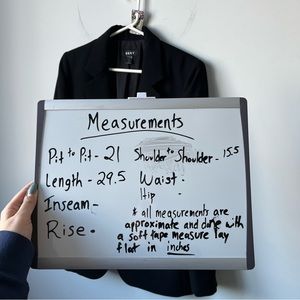 DKNY
Measurements
Pit to Pit - 21 Shoulder to Shoulder - 15.5
Length - 29.5 Waist:
Inseam - Hip
Rise - * all measurements are
approximate and done with
a soft tape measure lay
flat in inches